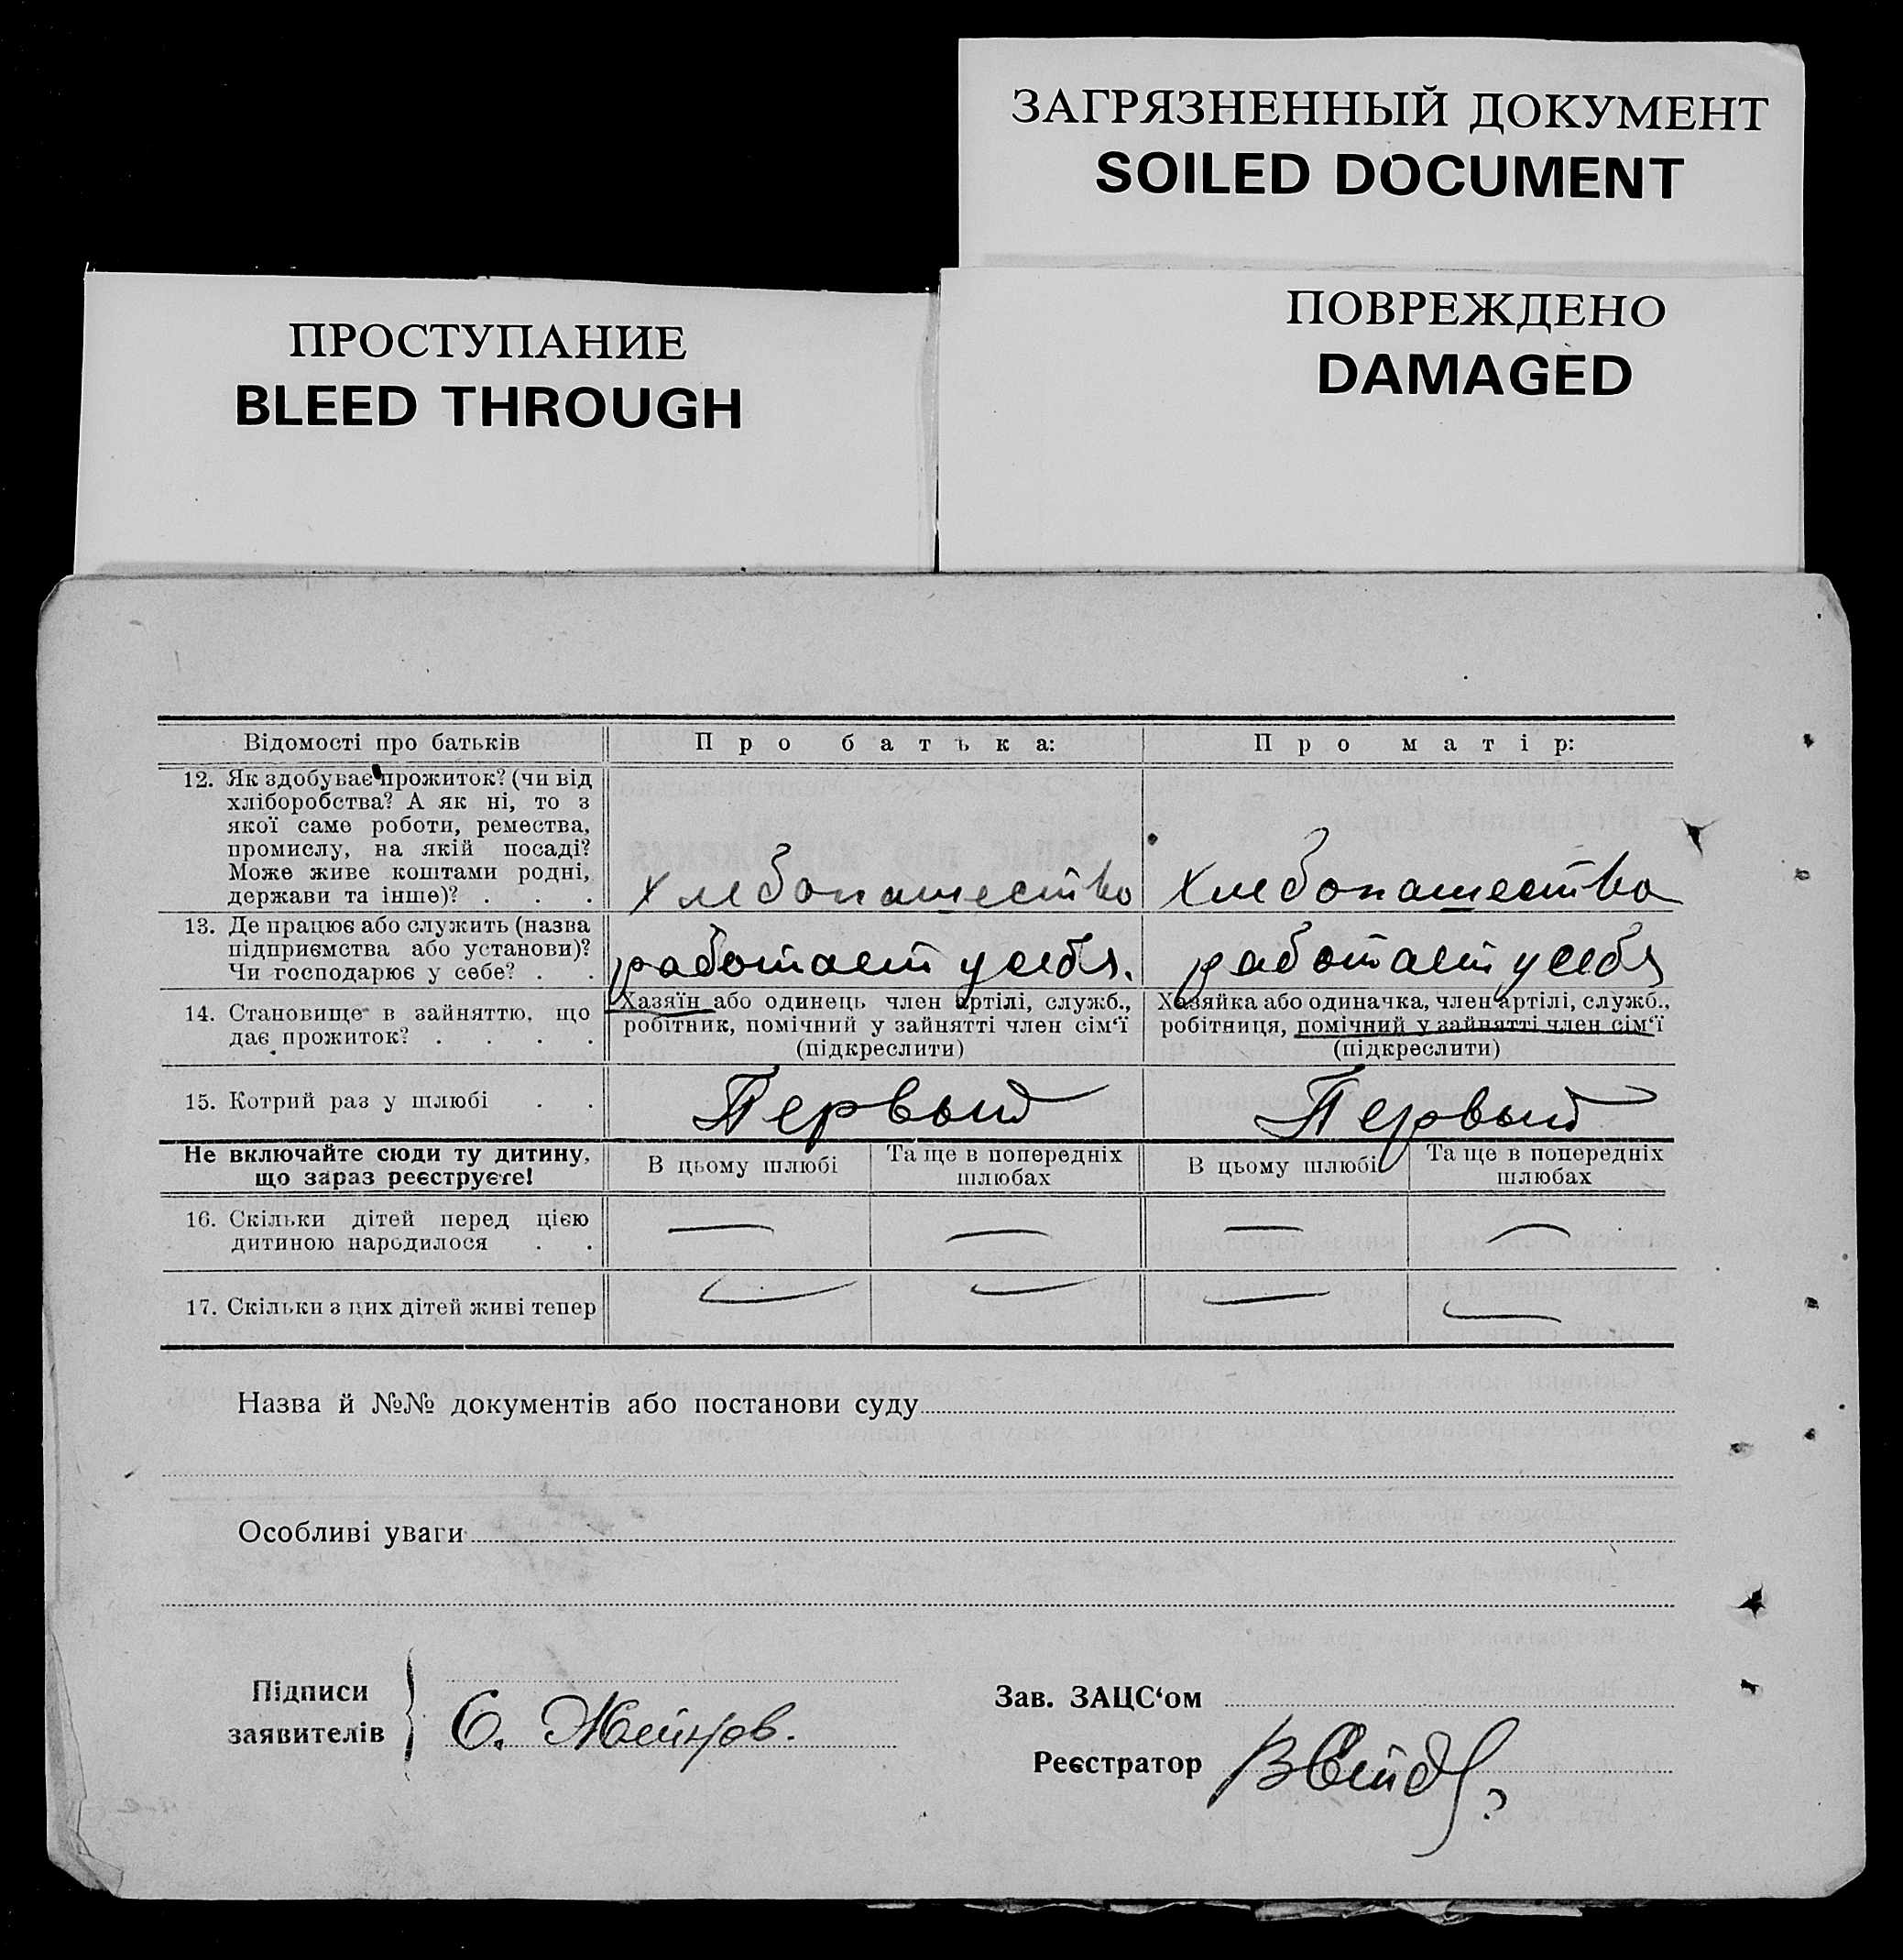 ЗАГРЯЗНЕННЫЙ ДОКУМЕНТ
SOILED DOCUMENT
ПРОСТУПАНИЕ
BLEED THROUGH
ПОВРЕЖДЕНО
DAMAGED
Відомості про батьків
Про батька:
Про матір:
12. Як здобуває прожиток? (чи від
хліборобства? А як ні, то з
якої саме роботи, ремества,
промислу, на якій посаді?
Може живе коштами родні,
держави та інше)? . . .
хлебопашество
хлебопашество
13. Де працює або служить (назва
підприємства або установи)?
Чи господарює у себе? . .
работает у себя.
работает у себя
14. Становище в зайняттю, що
дає прожиток? . . . .
Хазяїн або одинець член артілі, служб.,
робітник, помічний у зайнятті член сім'ї
(підкреслити)
Хазяйка або одиначка, член артілі, служб.,
робітниця, помічний у зайнятті член сім'ї
(підкреслити)
15. Котрий раз у шлюбі . .
Первый
Первый
Не включайте сюди ту дитину,
що зараз реєструєте!
В цьому шлюбі
Та ще в попередніх
шлюбах
В цьому шлюбі
Та ще в попередніх
шлюбах
16. Скільки дітей перед цією
дитиною народилося . .
— — — —
17. Скільки з цих дітей живі тепер
— — — —
Назва й №№ документів або постанови суду
Особливі уваги
Підписи
заявителів
С.
Зав. ЗАЦС'ом
Реєстратор